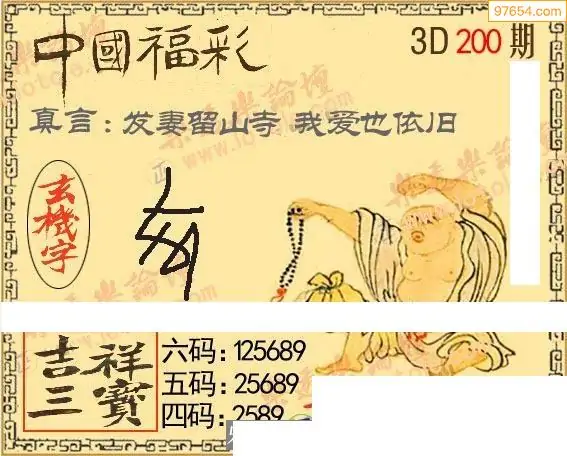 97654.com
中國福彩
3D 200 期
真言：发妻留山寺 我爱也依旧
玄機字
吉祥
三寳
六码：125689
五码：25689
四码：2589